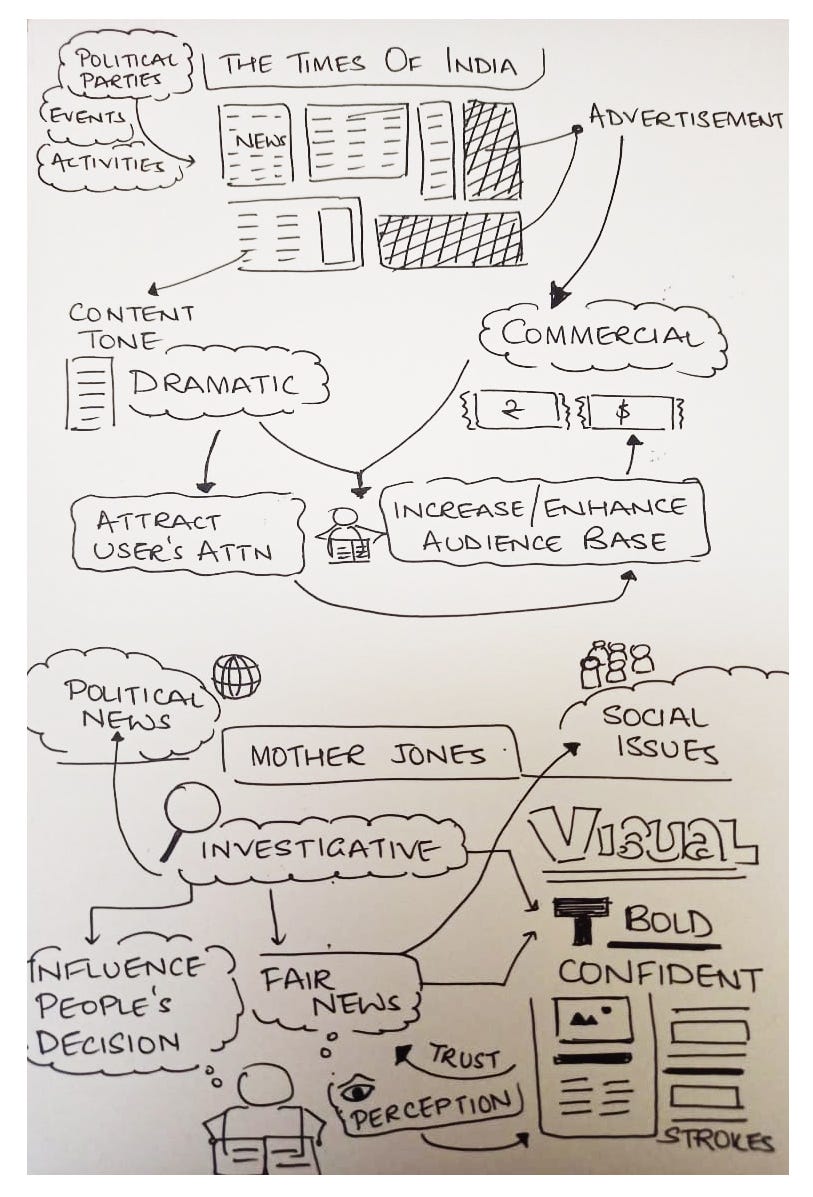 POLITICAL
PARTIES
THE TIMES OF INDIA
EVENTS
ACTIVITIES
NEWS
ADVERTISEMENT
CONTENT
TONE
DRAMATIC
COMMERCIAL
$
ATTRACT
USER'S ATTN
INCREASE/ENHANCE
AUDIENCE BASE
POLITICAL
NEWS
SOCIAL
ISSUES
MOTHER JONES
INVESTIGATIVE
VISUAL
T BOLD
CONFIDENT
INFLUENCE
PEOPLE'S
DECISION
FAIR
NEWS
TRUST
PERCEPTION
STROKES